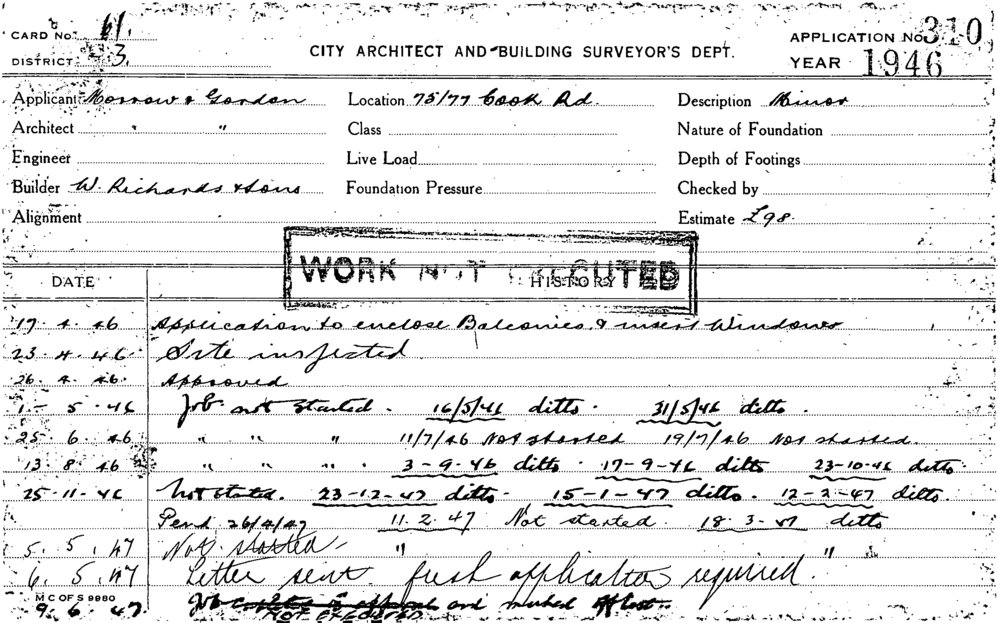 CARD No. 61.
APPLICATION No. 310
DISTRICT 3.
CITY ARCHITECT AND BUILDING SURVEYOR'S DEPT.
YEAR 1946
Applicant Morrow & Gordon Location 75/77 Cook Rd. Description Minor
Architect " " Class Nature of Foundation
Engineer Live Load Depth of Footings
Builder W. Richards & Sons Foundation Pressure Checked by
Alignment Estimate £98.
WORK NOT EXECUTED
DATE HISTORY
17. 4. 46 Application to enclose Balconies & insert Windows
23. 4. 46. Site inspected.
26. 4. 46. Approved
1 - 5 . 46 Job not started. 16/5/46 ditto. 31/5/46 ditto.
25. 6. 46 " " " 11/7/46 Not started 19/7/46 not started.
13. 8. 46 " " " . 3-9-46 ditto. 17-9-46 ditto 23-10-46 ditto.
25.11.46 Not started. 23-12-47 ditto. 15-1-47 ditto. 12-2-47 ditto.
Pend 26/4/47 11.2.47 Not started. 18.3.47 ditto
5. 5. 47 Not started - " "
6. 5. 47 Letter sent fresh application required.
M C OF S 9980
9. 6. 47. Job NOT EXECUTED and marked off